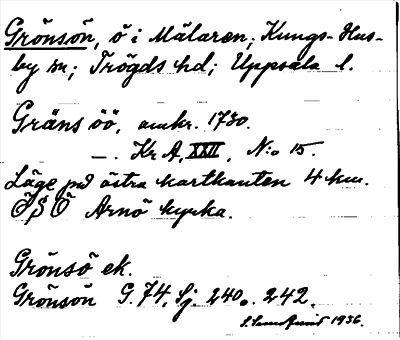 Grönsön, ö i Mälaren; Kungs-Hus-
by sn; Trögds hd; Uppsala l.
Gräns öö, omkr. 1730.
—. Kr A, XXII, N:o 15.
Läge på östra kartkanten 4 km.
ÖSÖ Arnö kyrka.
Grönsö ek.
Grönsön G. 74, Sj. 240 o. 242.
1936.